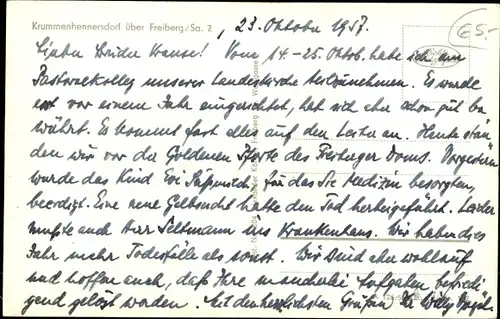 Krummenhennersdorf über Freiberg/Sa. 2, 23. Oktober 1957.
65,-
Lieber Bruder Krause! Vom 14.-25. Oktob. habe ich am
Pastoralkolleg unserer Landeskirche teilzunehmen. Es wurde
erst vor einem Jahr eingerichtet, hat sich aber schon gut be
währt. Es kommt fast alles auf den Leiter an. Heute stan
den wir vor der Goldenen Pforte des Freiberger Doms. Vorgestern
wurde das Kind Evi, für das Sie Medizin besorgten,
beerdigt. Eine neue Gelbsucht hatte den Tod herbeigeführt. Leider
mußte auch Herr Seltmann ins Krankenhaus. Wir haben dies
Jahr mehr Todesfälle als sonst. Wir sind aber wohlauf
und hoffen auch, daß Ihre mancherlei Aufgaben befriedi
gend gelöst werden. Mit den herzlichsten Grüßen Ihr Willy